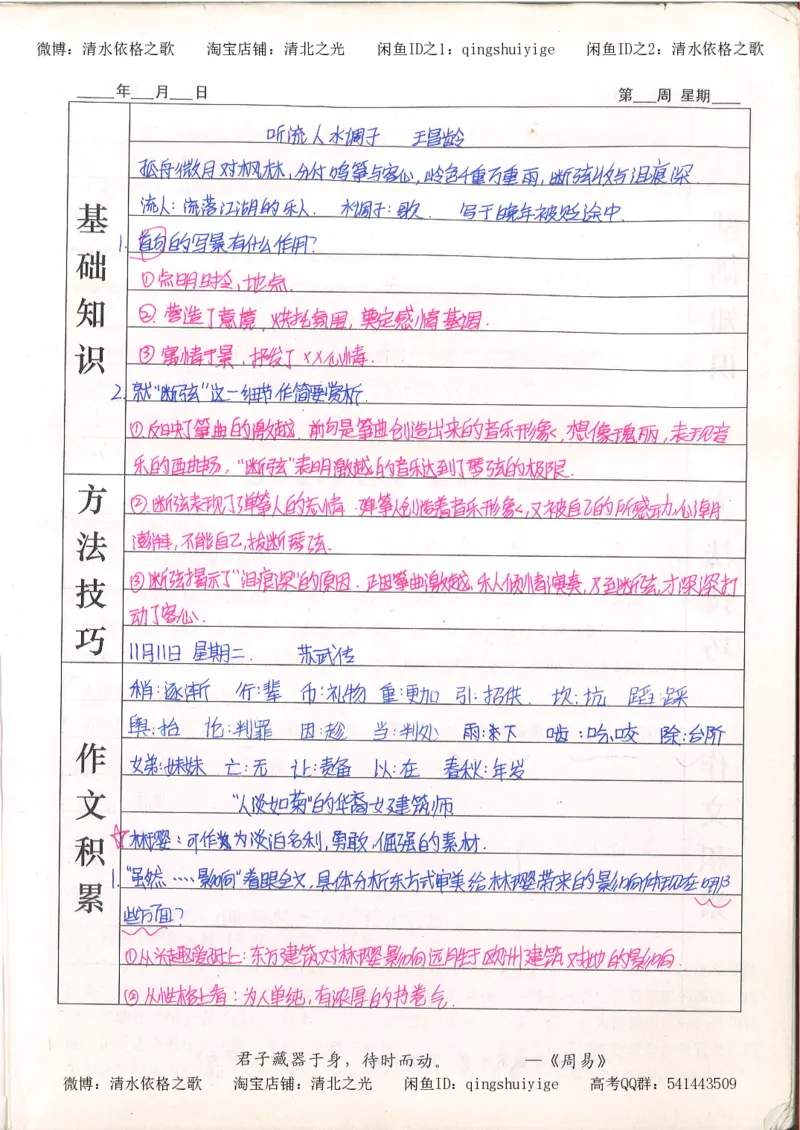 微博：清水依格之歌 淘宝店铺：清北之光 闲鱼ID之1：qingshuiyige 闲鱼ID之2：清水依格之歌
____年___月___日 第___周 星期____
听流人水调子 王昌龄
孤舟微月对枫林，分付鸣筝与客心，岭色千重万重雨，断弦收与泪痕深.
流人：流落江湖的乐人. 水调子：歌. 写于晚年被贬途中.
基础知识
1. 首句的写景有什么作用？
①点明时令，地点.
②. 营造了意境，烘托氛围，奠定感情基调.
③寓情于景，抒发了××心情.
2. 就“断弦”这一细节作简要赏析.
①反映了筝曲的激越. 前句是筝曲创造出来的音乐形象，想像瑰丽，表现音
乐的酣畅，“断弦”表明激越的音乐达到了琴弦的极限.
方法技巧
②断弦表现了弹筝人的悲情. 弹筝人创造着音乐形象，又被自己的所感动，心潮
澎湃，不能自已，拔断琴弦.
③断弦揭示了“泪痕深”的原因. 正由筝曲激越，乐人倾情演奏，乃至断弦，才深深打
动了客心.
11月11日 星期二. 苏武传
作文积累
稍：逐渐 行：辈 币：礼物 重：更加 引：招供. 坎：坑 蹈：踩
舆：抬 论：判罪 因：趁 当：判处 雨：下 啮：咬 除：台阶
女弟：妹妹 亡：无 让：责备 以：在 春秋：年岁
“人淡如菊”的华裔女建筑师
☆林璎：可作为淡泊名利，勇敢，倔强的素材.
1. “虽然……影响”着眼全文，具体分析东方式审美给林璎带来的影响体现在哪
些方面？
①从兴趣爱好上：东方建筑对林璎影响远胜于欧洲建筑对她的影响.
②从性格上看：为人单纯，有浓厚的书卷气.
君子藏器于身，待时而动。 —《周易》
微博：清水依格之歌 淘宝店铺：清北之光 闲鱼ID：qingshuiyige 高考QQ群：541443509